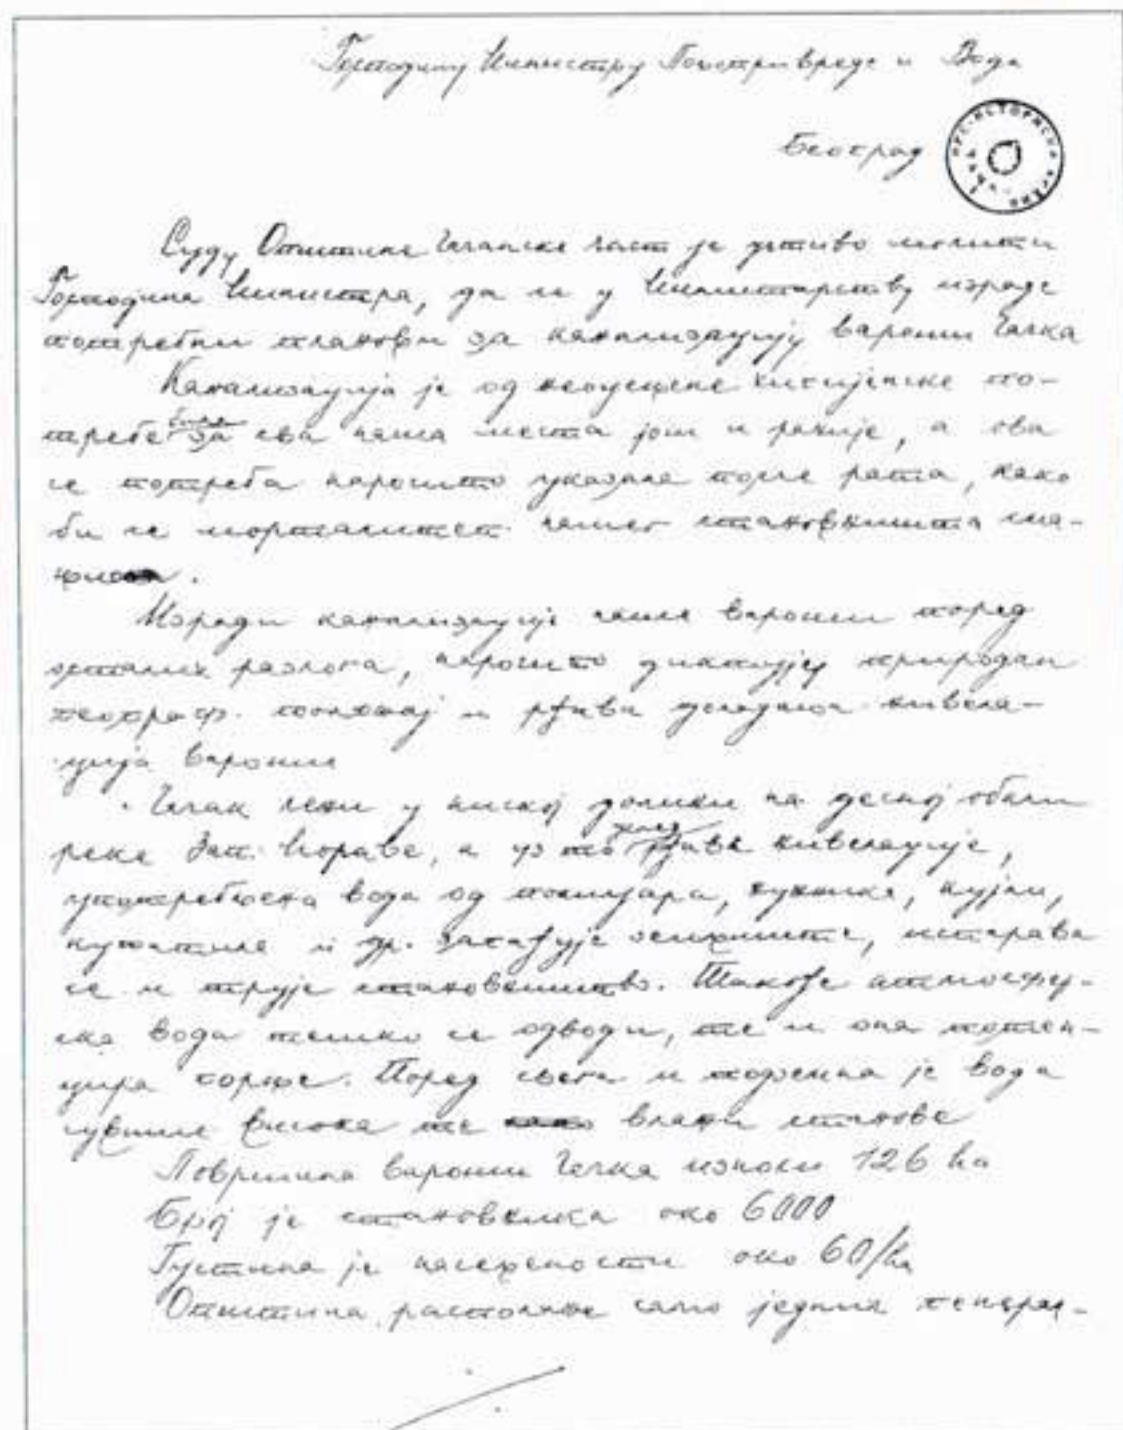 Господину Министру Пољопривреде и Вода
Београд
Суду Општине Чачанске част је учтиво молити
Господина Министра, да се у Министарству израде
потребни планови за канализацију вароши Чачка
Канализација је од неоцењене хигијенске по-
требе била за сва наша места још и раније, а ова
се потреба нарочито указала после рата, како
би се морталитет нашег становништва сма-
њио.
Изради канализације наше вароши поред
осталих разлога, нарочито диктују природан
географ. положај и рђава нивела-
ција вароши
Чачак лежи у ниској долини на десној обали
реке Зап. Мораве, а уз то рђаве нивелације,
употребљена вода од помијара, вукника, кујни,
купатила и др. загађује земљиште, испарава
се и трује становништво. Такође атмосфер-
ска вода тешко се одводи, те и она потен-
цира горње. Поред свега и подземна је вода
сувише висока те влажи станове
Површина вароши Чачка износи 126 ha
Број је становника око 6000
Густина је насељености око 60/ha
Општина располаже само једним генерал-